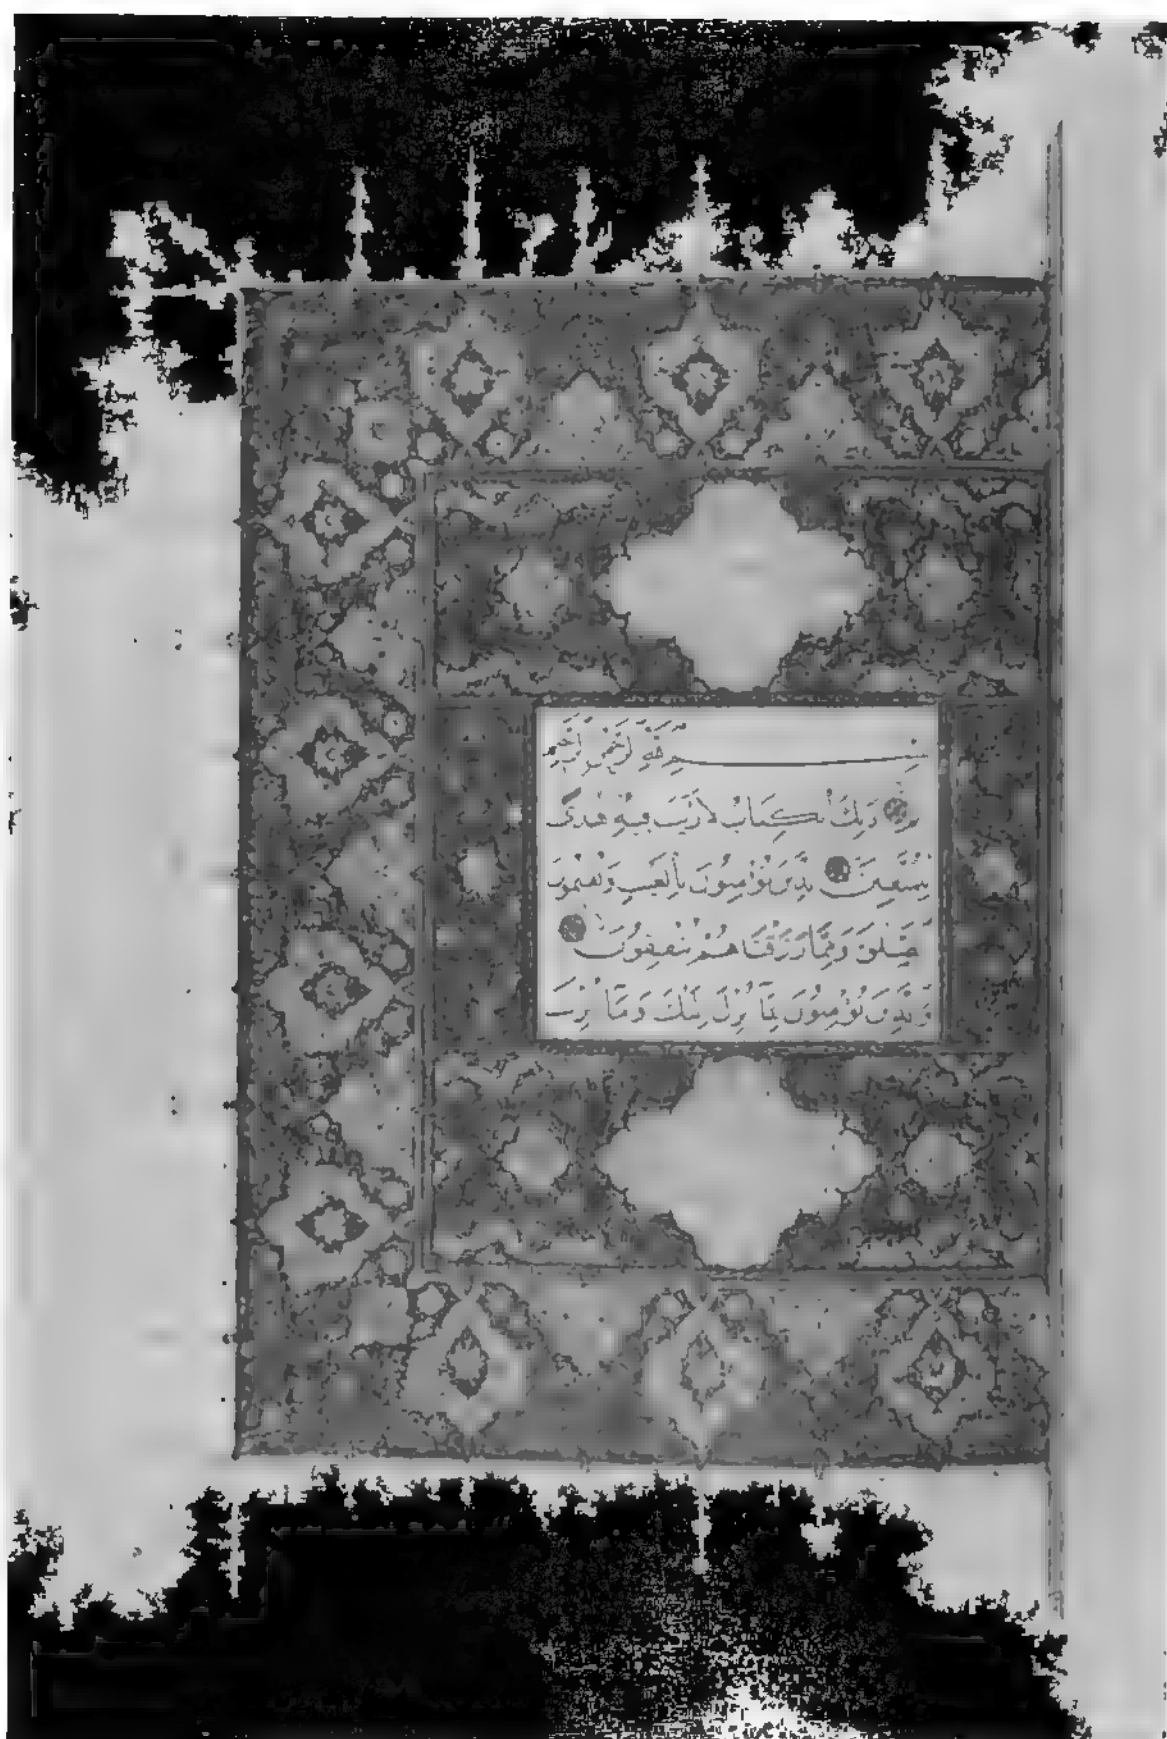 بِسْمِ اللّٰهِ الرَّحْمٰنِ الرَّحِيمِ
الم ذٰلِكَ الْكِتَابُ لَا رَيْبَ فِيهِ هُدًى
لِلْمُتَّقِينَ الَّذِينَ يُؤْمِنُونَ بِالْغَيْبِ وَيُقِيمُونَ
الصَّلٰوةَ وَمِمَّا رَزَقْنَاهُمْ يُنْفِقُونَ
وَالَّذِينَ يُؤْمِنُونَ بِمَا أُنْزِلَ إِلَيْكَ وَمَا أُنْزِلَ